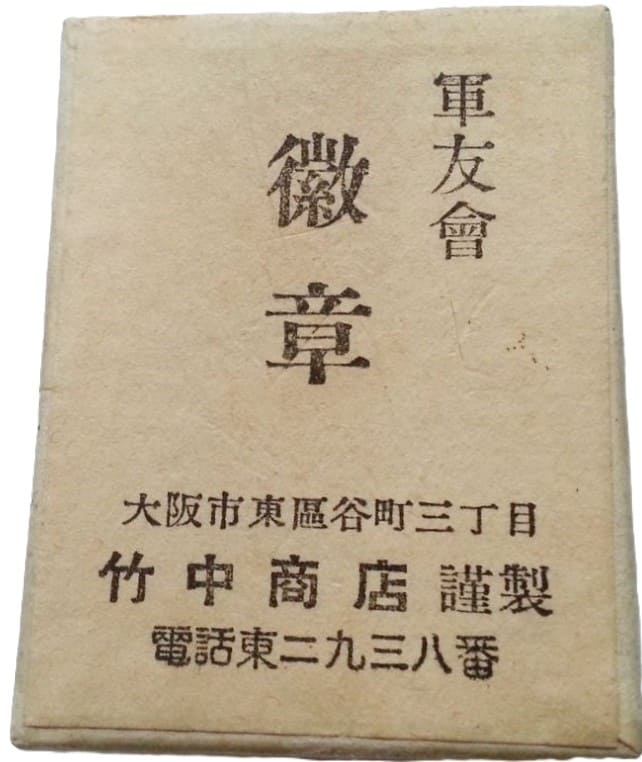 軍友會
徽章
大阪市東區谷町三丁目
竹中商店 謹製
電話東二九三八番